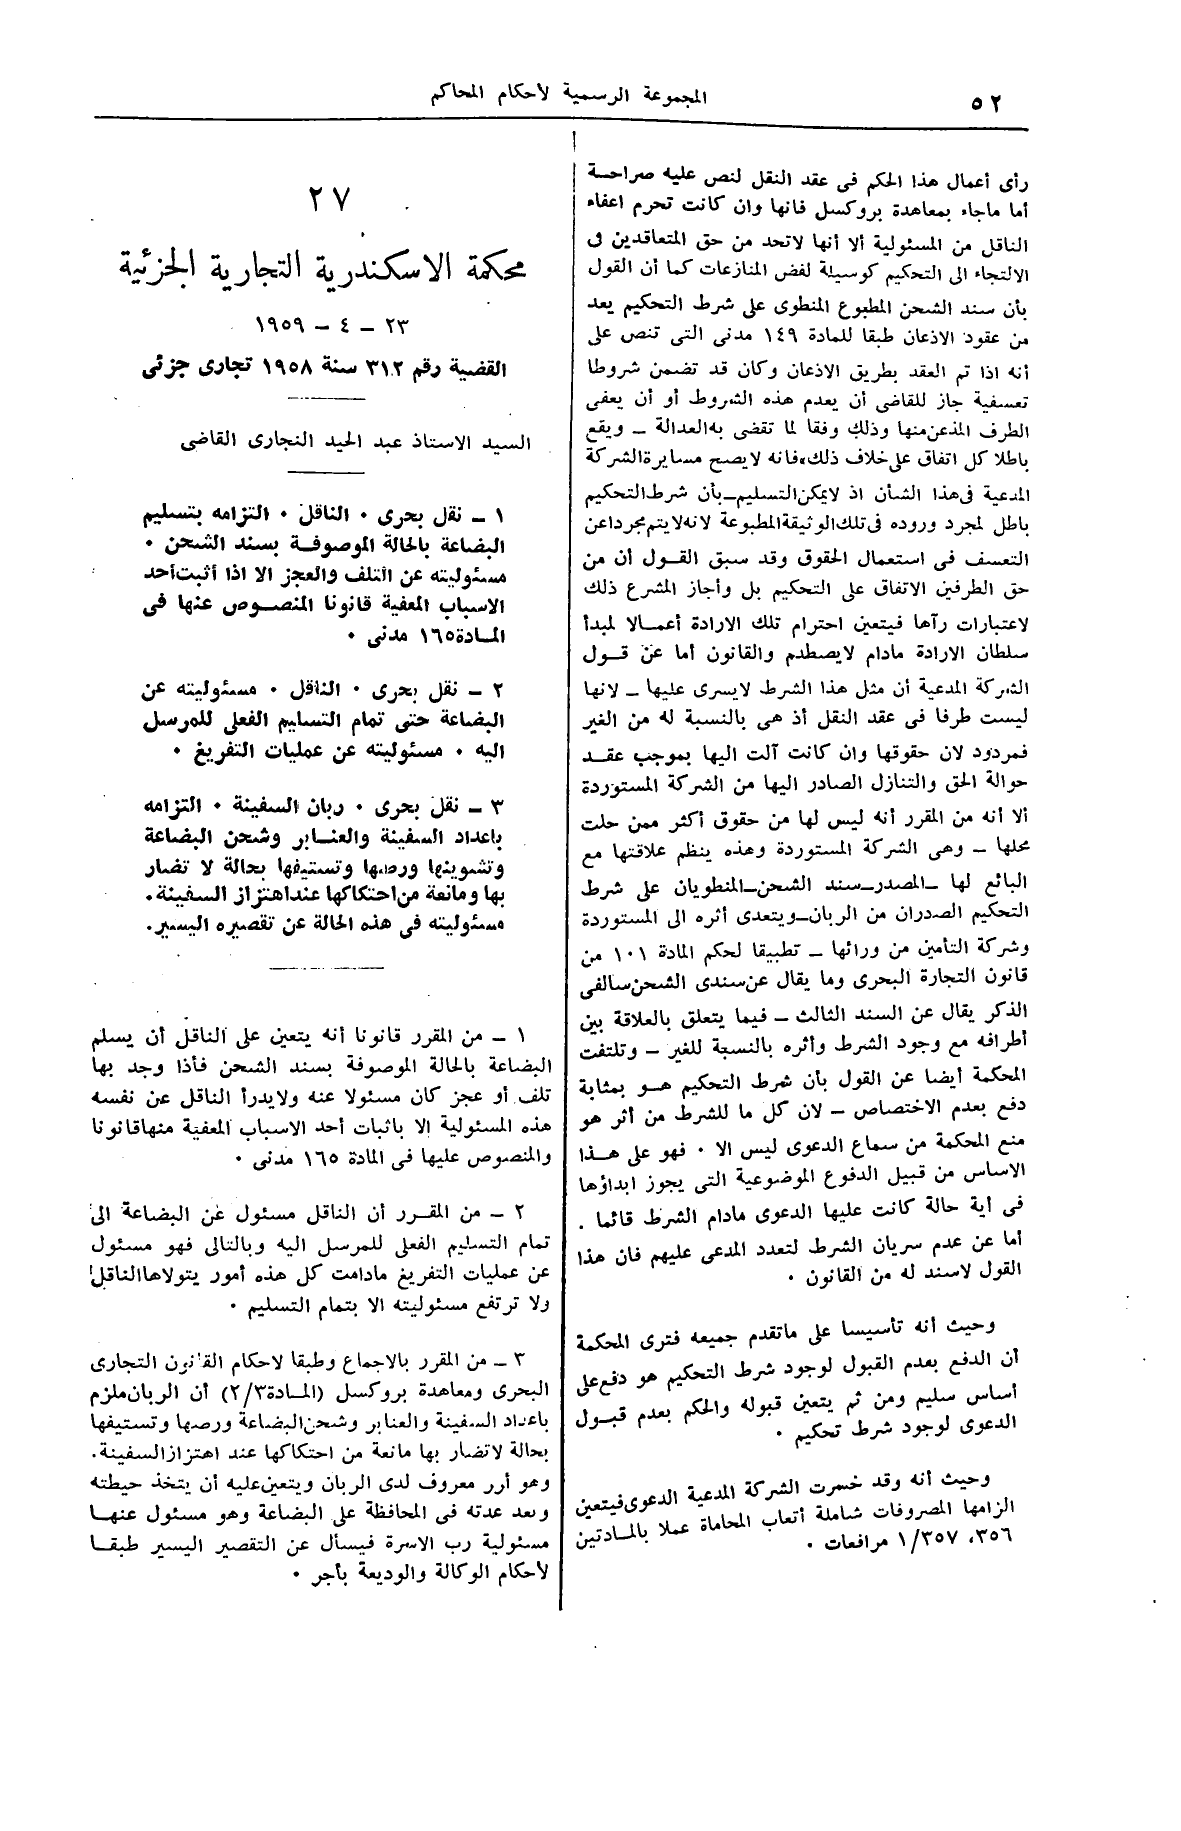 ٥٢
المجموعة الرسمية لأحكام المحاكم
رأى أعمال هذا الحكم فى عقد النقل لنص عليه صراحة
أما ماجاء بمعاهدة بروكسل فانها وان كانت تحرم اعفاء
الناقل من المسئولية ألا أنها لاتحد من حق المتعاقدين فى
الالتجاء الى التحكيم كوسيلة لفض المنازعات كما أن القول
بأن سند الشحن المطبوع المنطوى على شرط التحكيم يعد
من عقود الاذعان طبقا للمادة ١٤٩ مدنى التى تنص على
أنه اذا تم العقد بطريق الاذعان وكان قد تضمن شروطا
تعسفية جاز للقاضى أن يعدم هذه الشروط أو أن يعفى
الطرف المذعن منها وذلك وفقا لما تقضى به العدالة – ويقع
باطلا كل اتفاق على خلاف ذلك، فانه لايصح مسايرة الشركة
المدعية فى هذا الشأن اذ لايمكن التسليم – بأن شرط التحكيم
باطل لمجرد وروده فى تلك الوثيقة المطبوعة لانه لايتم مجردا عن
التعسف فى استعمال الحقوق وقد سبق القول أن من
حق الطرفين الاتفاق على التحكيم بل وأجاز المشرع ذلك
لاعتبارات رآها فيتعين احترام تلك الارادة أعمالا لمبدأ
سلطان الارادة مادام لايصطدم والقانون أما عن قول
الشركة المدعية أن مثل هذا الشرط لايسرى عليها – لانها
ليست طرفا فى عقد النقل أذ هى بالنسبة له من الغير
فمردود لان حقوقها وان كانت آلت اليها بموجب عقد
حوالة الحق والتنازل الصادر اليها من الشركة المستوردة
ألا أنه من المقرر أنه ليس لها من حقوق أكثر ممن حلت
محلها – وهى الشركة المستوردة وهذه ينظم علاقتها مع
البائع لها – المصدر – سند الشحن – المنطويان على شرط
التحكيم الصدران من الربان – ويتعدى أثره الى المستوردة
وشركة التأمين من ورائها – تطبيقا لحكم المادة ١٠١ من
قانون التجارة البحرى وما يقال عن سندى الشحن سالفى
الذكر يقال عن السند الثالث – فيما يتعلق بالعلاقة بين
أطرافه مع وجود الشرط وأثره بالنسبة للغير – وتلتفت
المحكمة أيضا عن القول بأن شرط التحكيم هو بمثابة
دفع بعدم الاختصاص – لان كل ما للشرط من أثر هو
منع المحكمة من سماع الدعوى ليس الا ٠ فهو على هذا
الاساس من قبيل الدفوع الموضوعية التى يجوز ابداؤها
فى أية حالة كانت عليها الدعوى مادام الشرط قائما ٠
أما عن عدم سريان الشرط لتعدد المدعى عليهم فان هذا
القول لاسند له من القانون ٠
وحيث أنه تأسيسا على ماتقدم جميعه فترى المحكمة
أن الدفع بعدم القبول لوجود شرط التحكيم هو دفع على
أساس سليم ومن ثم يتعين قبوله والحكم بعدم قبول
الدعوى لوجود شرط تحكيم ٠
وحيث أنه وقد خسرت الشركة المدعية الدعوى فيتعين
الزامها المصروفات شاملة أتعاب المحاماة عملا بالمادتين
٣٥٦، ١/٣٥٧ مرافعات ٠
٢٧
محكمة الاسكندرية التجارية الجزئية
٢٣ – ٤ – ١٩٥٩
القضية رقم ٣١٢ سنة ١٩٥٨ تجارى جزئى
السيد الاستاذ عبد الحيد النجارى القاضى
١ – نقل بحرى ٠ الناقل ٠ التزامه بتسليم
البضاعة بالحالة الموصوفة بسند الشحن ٠
مسئوليته عن التلف والعجز الا اذا أثبت أحد
الاسباب المعفية قانونا المنصوص عنها فى
المادة ١٦٥ مدنى ٠
٢ – نقل بحرى ٠ الناقل ٠ مسئوليته عن
البضاعة حتى تمام التسليم الفعلى للمرسل
اليه ٠ مسئوليته عن عمليات التفريغ ٠
٣ – نقل بحرى ٠ ربان السفينة ٠ التزامه
باعداد السفينة والعنابر وشحن البضاعة
وتشوينها ورصها وتستيفها بحالة لا تضار
بها ومانعة من احتكاكها عند اهتزاز السفينة ٠
مسئوليته فى هذه الحالة عن تقصيره اليسير ٠
١ – من المقرر قانونا أنه يتعين على الناقل أن يسلم
البضاعة بالحالة الموصوفة بسند الشحن فأذا وجد بها
تلف أو عجز كان مسئولا عنه ولايدرأ الناقل عن نفسه
هذه المسئولية الا باثبات أحد الاسباب المعفية منها قانونا
والمنصوص عليها فى المادة ١٦٥ مدنى ٠
٢ – من المقرر أن الناقل مسئول عن البضاعة الى
تمام التسليم الفعلى للمرسل اليه وبالتالى فهو مسئول
عن عمليات التفريغ مادامت كل هذه أمور يتولاها الناقل
ولا ترتفع مسئوليته الا بتمام التسليم ٠
٣ – من المقرر بالاجماع وطبقا لاحكام القانون التجارى
البحرى ومعاهدة بروكسل (المادة ٢/٣) أن الربان ملزم
باعداد السفينة والعنابر وشحن البضاعة ورصها وتستيفها
بحالة لاتضار بها مانعة من احتكاكها عند اهتزاز السفينة ٠
وهو أرر معروف لدى الربان ويتعين عليه أن يتخذ حيطته
وبعد عدته فى المحافظة على البضاعة وهو مسئول عنها
مسئولية رب الاسرة فيسأل عن التقصير اليسير طبقا
لأحكام الوكالة والوديعة بأجر ٠